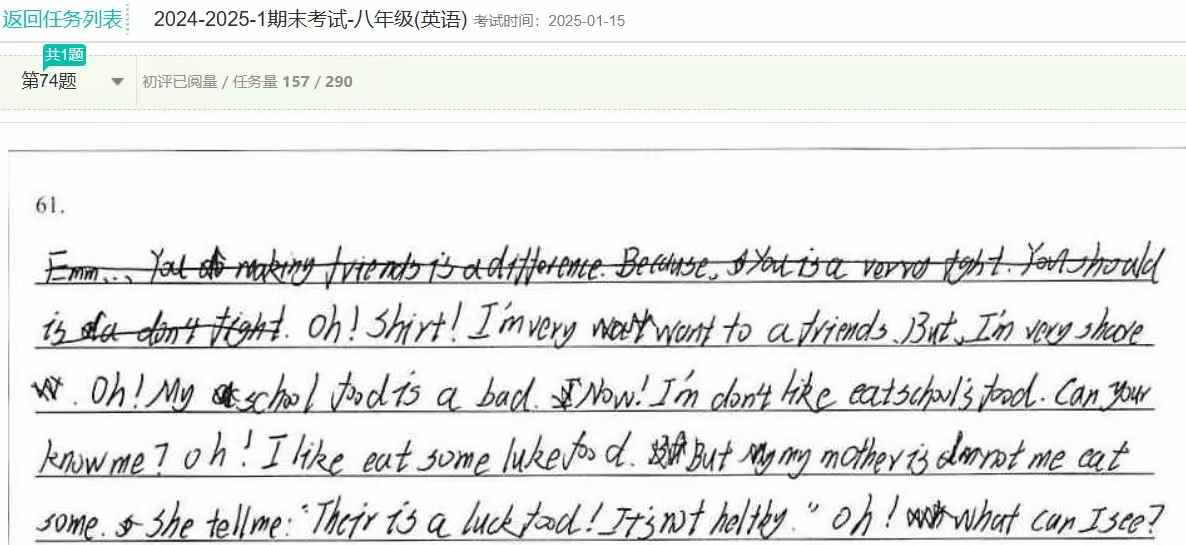 返回任务列表 2024-2025-1期末考试-八年级(英语) 考试时间：2025-01-15
共1题
第74题 初评已阅量 / 任务量 157 / 290
61.
Emm..., You making friends is a difference. Because, You is a verro fght. You should
is a don't fight. Oh! Shirt! I'm very want to a friends. But, I'm very shore
. Oh! My school food is a bad. Now! I'm don't like eat school's food. Can your
know me? Oh! I like eat some luke food. But my mother is not me eat
some. She tell me: "Their is a luck food! It's not helthy." Oh! What can I see?